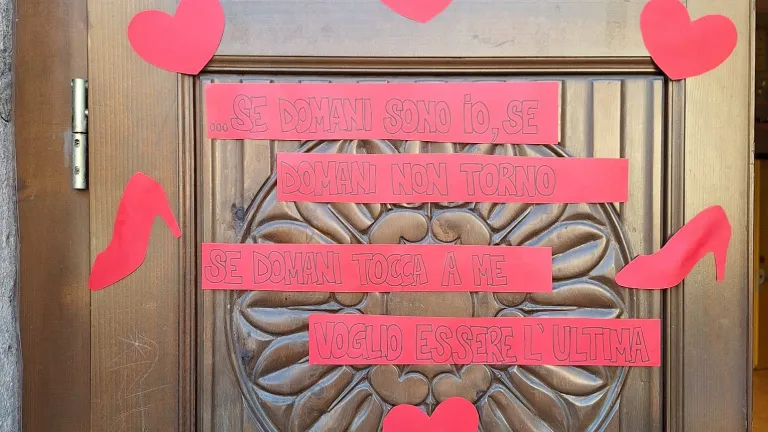 ...SE DOMANI SONO iO, SE
DOMANI NON TORNO
SE DOMANI TOCCA A ME
VOGLIO ESSERE L'ULTIMA